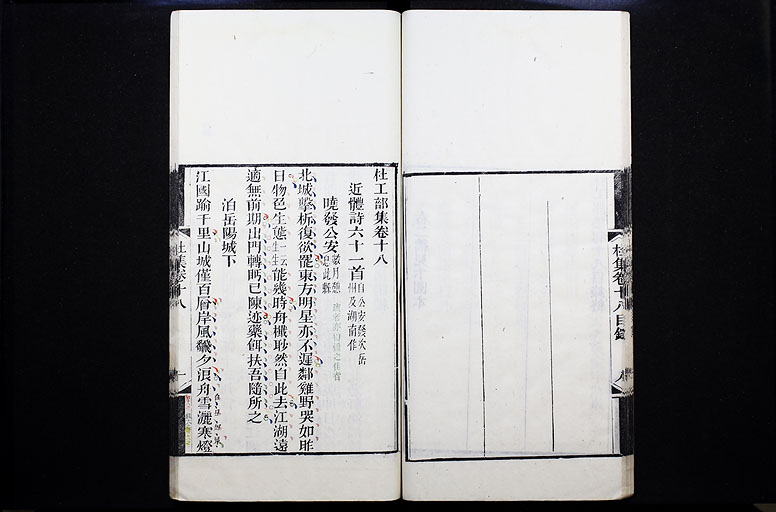 杜集卷十八目錄
杜工部集卷十八
近體詩六十一首自公安發次岳州及湖南作
曉發公安數月憩息此縣
北城擊柝復欲罷東方明星亦不遲鄰雞野哭如昨
日物色生態能幾時舟檝眇然自此去江湖遠
適無前期出門轉眄已陳迹藥餌扶吾隨所之
泊岳陽城下
江國踰千里山城僅百層岸風翻夕浪舟雪灑寒燈
杜集卷十八
一